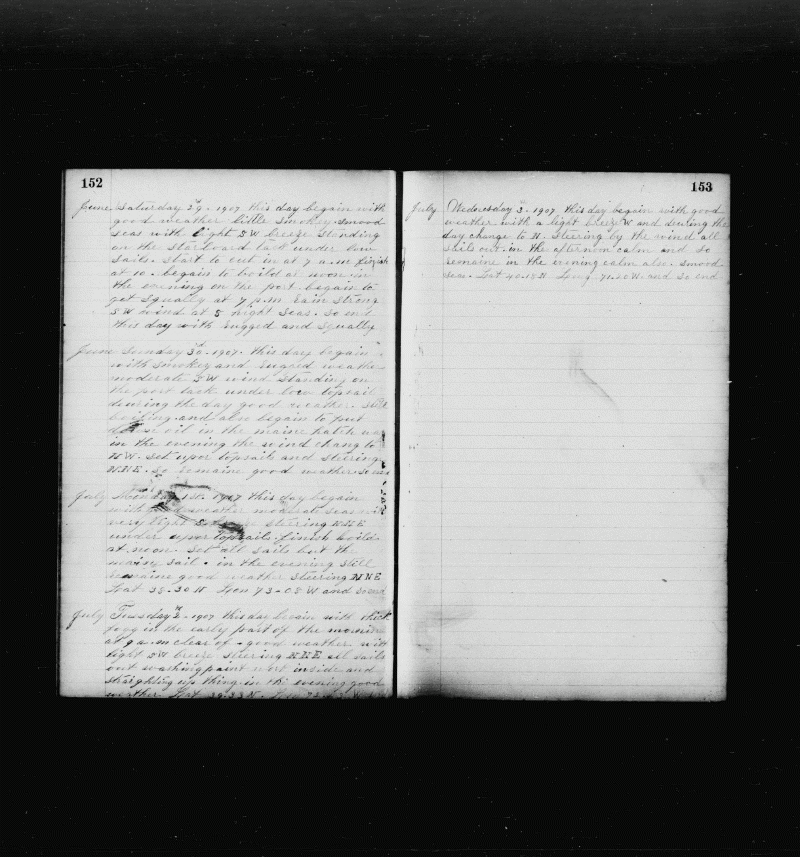 152
June Saturday 29. 1907 this day begain with
good weather little smokey smood
seas with light SW breeze standing
on the starboard tack under low
sails. start to cut in at 7 a.m finish
at 10. begain to boild at noon in
the evening on the port. begain to
get squaly at 7 p.m rain strong
SW wind at 8 hight seas. So end
this day with rugged and squally
June Sunday 30. 1907. this day begain
with smokey and rugged weather
moderate SW wind standing on
the port tack under low topsail
dewring the day good weather. still
boiling and also begain to put
oil in the maine hatch
in the evening the wind chang to
NW. set uper topsails and steering
NNE. So remaine good weather so end
July Monday 1st. 1907 this day begain
with weather moderate seas with
very light steering NNE
under uper topsails. finish boild
at noon. Set all sails but the
sail. in the evening still
remaine good weather steering NNE
Lat 38-30N Lon 73-08W and so end
July Tuesday 2. 1907 this day begain with thick
fogg in the early part of the morning
at 9 a.m clear of. good weather with
light SW breeze steering NNE all sails
out washing paint work inside and
straighting up thing in the evening good
weather Lat 39.33N.
153
July Wednesday 3. 1907 this day begain with good
weather with a light breeze W and dewring the
day change to N. steering by the wind all
sails out. in the afternon calm and so
remaine in the evening calm also. smood
seas. Lat 40-18N Long 71-20W and so end